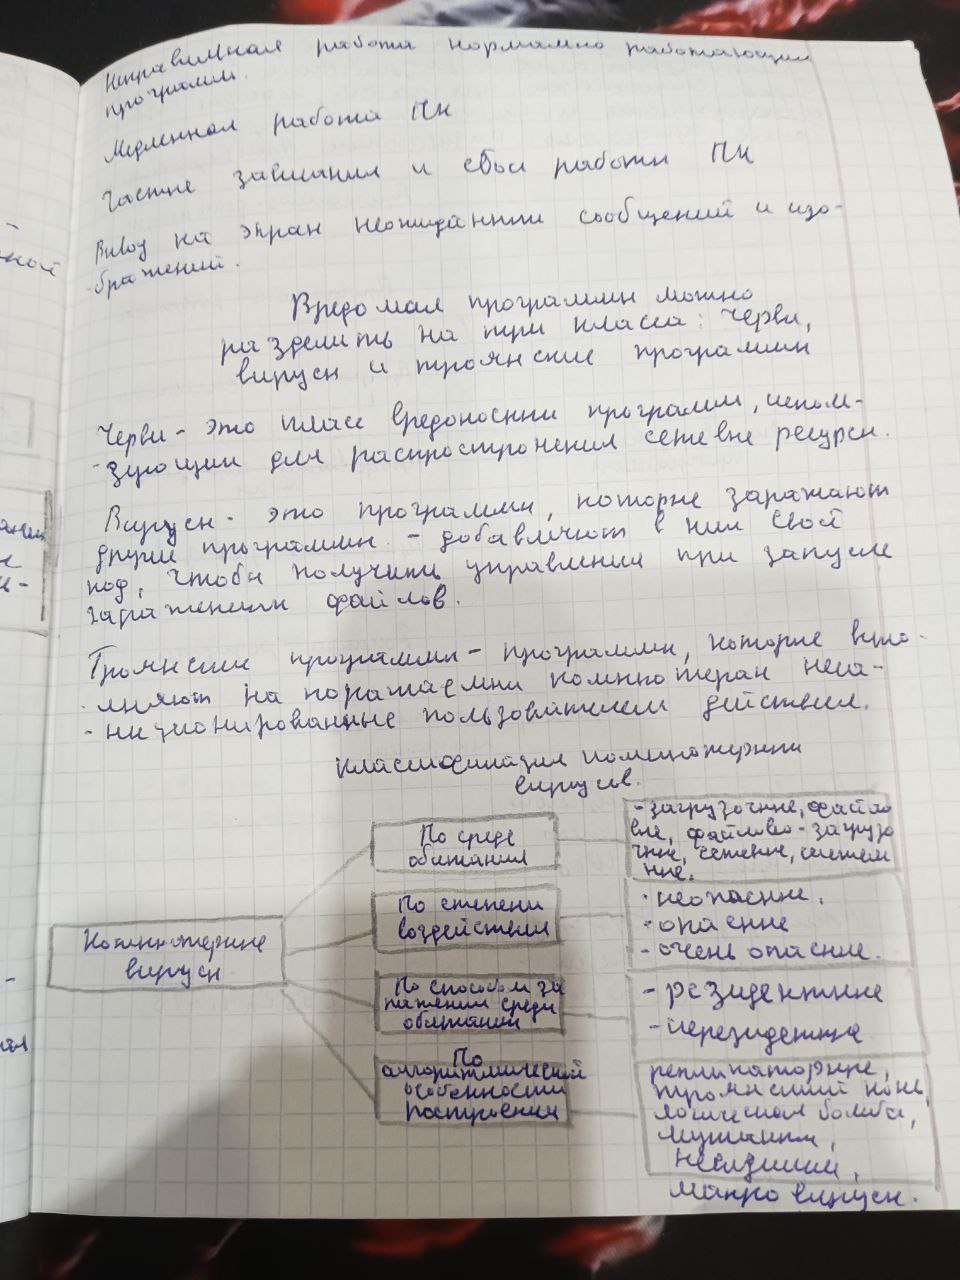 Неправильная работа нормально работающих
программ.
Медленная работа ПК
Частые зависания и сбои работы ПК
Вывод на экран неожиданных сообщений и изо-
-бражений.
Вредомая программы можно
разделить на три класса: черви,
вирусы и троянские программы
Черви - это класс вредоносных программ, исполь-
-зующих для распростронения сетевые ресурсы.
Вирусы - это программы, которые заражают
другие программы - добавляют в них свой
код, чтобы получить управления при запуске
зараженных файлов.
Троянские программы - программы, которые выпо-
-лняют на поражаемых компьютерах неса-
-нкционированные пользователем действия.
Классификация компьютерных
вирусов.
По среде
обитания
- загрузочные, файло
вые, файлово-загрузо
чные, сетевые, систем
ные.
По степени
воздействия
- неопасные.
- опасные
- очень опасные.
Компьютерные
вирусы
По способам за
ражении среды
обитания
- резидентные
- нерезидентные
По
алгоритмической
особенности
построения
репликаторные,
троянский конь,
логическая бомба,
мутанты,
невидимки,
макровирусы.